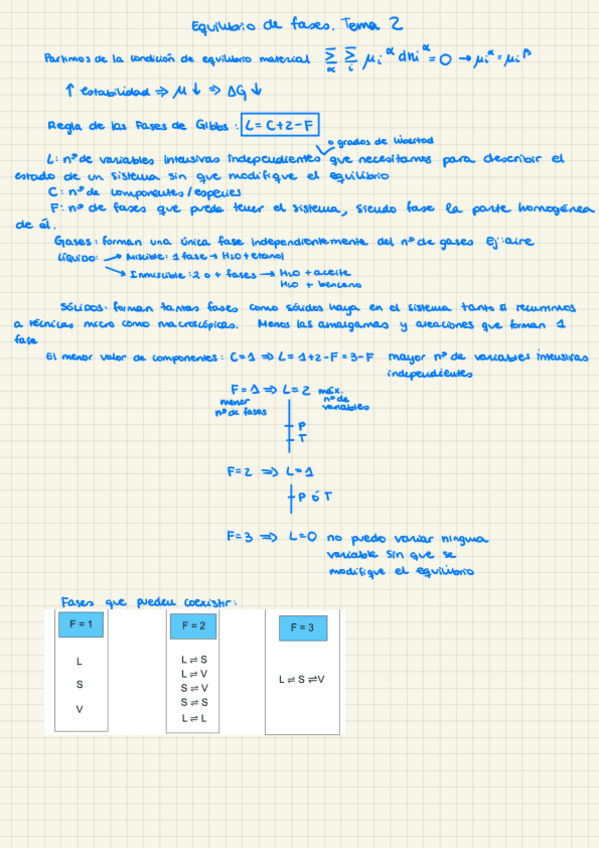 Equilibrio de fases. Tema 2
Partimos de la condición de equilibrio material Σα Σi μi^α dni^α = 0 → μi^α = μi^β
↑ estabilidad ⇒ μ ↓ ⇒ ΔG ↓
Regla de las Fases de Gibbs: L = C+2-F
o grados de libertad
L: nº de variables intensivas independientes que necesitamos para describir el
estado de un sistema sin que modifique el equilibrio
C: nº de componentes/especies
F: nº de fases que puede tener el sistema, siendo fase la parte homogénea
de él.
Gases: forman una única fase independientemente del nº de gases Ej: aire
Líquido: → Miscible: 1 fase → H2O + etanol
→ Inmiscible: 2 o + fases → H2O + aceite
H2O + benceno
SÓLIDOS: forman tantas fases como sólidos haya en el sistema tanto si recurrimos
a técnicas micro como macroscópicas. Menos las amalgamas y aleaciones que forman 1
fase
El menor valor de componentes: C=1 ⇒ L = 1+2-F = 3-F mayor nº de variables intensivas
independientes
F=1 ⇒ L=2 máx.
menor
nº de fases
nº de
variables
P
T
F=2 ⇒ L=1
P ó T
F=3 ⇒ L=0 no puedo variar ninguna
variable sin que se
modifique el equilibrio
Fases que pueden coexistir:
F = 1
L
S
V
F = 2
L ⇌ S
L ⇌ V
S ⇌ V
S ⇌ S
L ⇌ L
F = 3
L ⇌ S ⇌ V